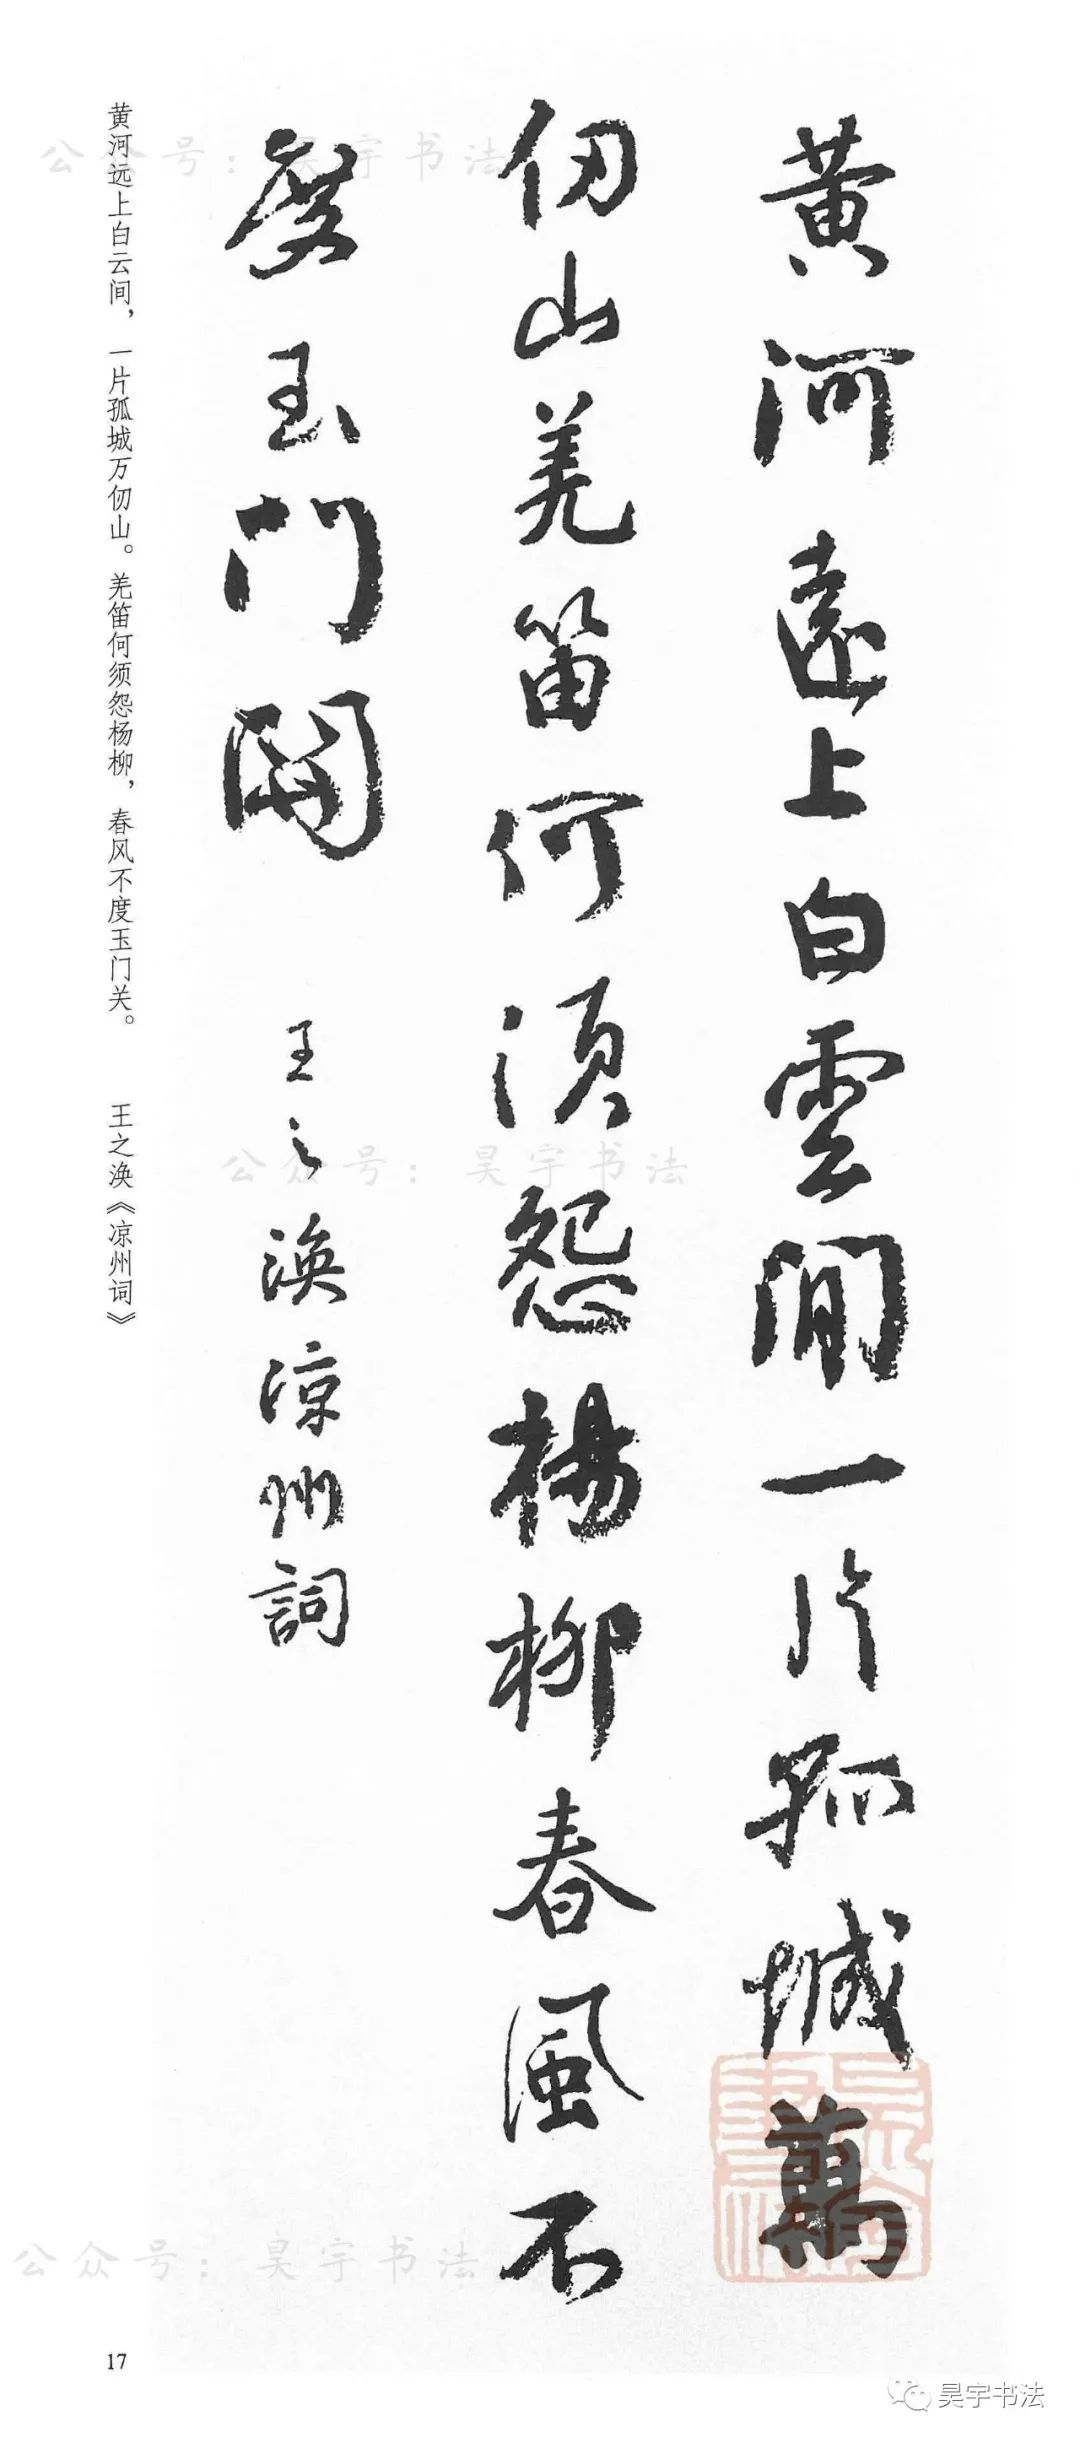 黄河遠上白雲間一片孤城萬
仞山羌笛何須怨楊柳春風不
度玉門関
王之渙涼州詞
黄河远上白云间，一片孤城万仞山。羌笛何须怨杨柳，春风不度玉门关。 王之涣《凉州词》
公众号：昊宇书法
公众号：昊宇书法
公众号：昊宇书法
昊宇書法
17
昊宇书法